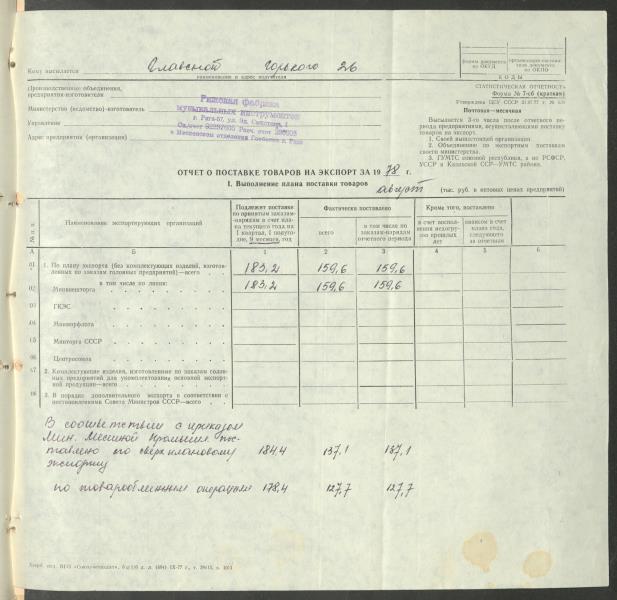 Кому высылается Главснот Горького 26
наименование и адрес получателя
формы документа по ОКУД
организации-составителя документа по ОКПО
КОДЫ
(Производственные объединения, предприятия-изготовителя
Министерство (ведомство)-изготовитель
Управление
Адрес предприятия (организации)
Рижская фабрика
музыкальных инструментов
СТАТИСТИЧЕСКАЯ ОТЧЕТНОСТЬ
Форма № 7-сб (краткая)
Утверждена ЦСУ СССР
Почтовая—месячная
Высылается 3-го числа после отчетного периода предприятиями, осуществляющими поставку товаров на экспорт.
1. Своей вышестоящей организации
2. Объединению по экспортным поставкам своего министерства.
3. ГУМТС союзной республики, а по РСФСР, УССР и Казахской ССР—УМТС района.
ОТЧЕТ О ПОСТАВКЕ ТОВАРОВ НА ЭКСПОРТ ЗА 1978 г.
I. Выполнение плана поставки товаров август (тыс. руб. в оптовых ценах предприятий)
№ п п
Наименование экспортирующих организаций
Подлежит поставке по принятым заказам-нарядам в счет плана текущего года на I квартал, I полугодие, 9 месяцев, год
Фактически поставлено
всего
в том числе по заказам-нарядам отчетного периода
Кроме того, поставлено
в счет восполнения недогрузов прошлых лет
авансом в счет плана года, следующего за отчетным
А Б 1 2 3 4 5 6
01 1. По плану экспорта (без комплектующих изделий, изготовленных по заказам головных предприятий)—всего 183,2 159,6 159,6
в том числе по линии:
02 Минвнешторга 183,2 159,6 159,6
03 ГКЭС
04 Минморфлота
05 Минторга СССР
06 Центросоюза
07 2. Комплектующие изделия, изготовленные по заказам головных предприятий для укомплектования основной экспортной продукции—всего
08 3. В порядке дополнительного экспорта в соответствии с постановлениями Совета Министров СССР—всего
В соответствии с приказом
Мин. Местной Промышл. пос-
тавлено по сверхплановому
экспорту 184,4 137,1 137,1
по товарообменным операциям 178,4 127,7 127,7